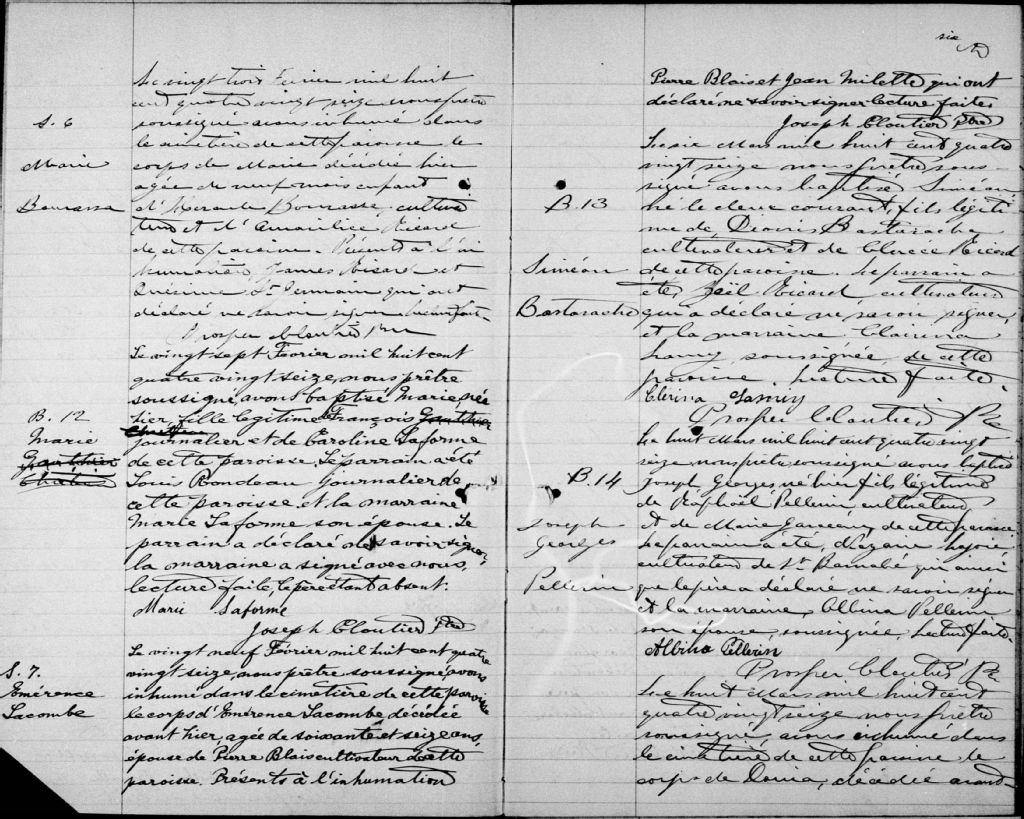 S. 6
Marie
Bourassa
Le vingt trois Fevrier mil huit
cent quatre vingt seize nous prêtre
soussigné avons inhumé dans
le cimetière de cette paroisse le
corps de Marie décédée hier
agée de neuf mois enfant
Bourassa cultiva
teur et d' Ricard
de cette paroisse. Présents à l'in
humation James Ricard et
St Germain qui ont
déclaré ne savoir signer lecture faite.
Prosper Cloutier Ptre
B. 12
Marie
Gauthier
Le vingt sept Fevrier mil huit cent
quatre vingt seize, nous prêtre
soussigné, avons baptisé Marie née
hier, fille legitime François Gauthier
journalier et de Caroline Laforme
de cette paroisse. Le parrain a été
Louis Rondeau journalier de
cette paroisse et la marraine
Marie Laforme son épouse. Le
parrain a déclaré ne savoir signer
la marraine a signé avec nous,
lecture faite, le père étant absent.
Marie Laforme
Joseph Cloutier Ptre
S. 7.
Emérence
Lacombe
Le vingt neuf Fevrier mil huit cent quatre
vingt seize, nous prêtre soussigné, avons
inhumé dans le cimetière de cette paroisse
le corps d'Emérence Lacombe décédée
avant hier, agée de soixante et seize ans,
épouse de Pierre Blais cultivateur de cette
paroisse. Présents à l'inhumation
six
Pierre Blais et Jean Milette qui ont
déclaré ne savoir signer lecture faite.
Joseph Cloutier Ptre
B. 13
Siméon
Bastarache
Le six Mars mil huit cent quatre
vingt seize nous prêtre sous-
signé avons baptisé Siméon
né le deux courant, fils légiti
me de Bastarache
cultivateur et de Ricard
de cette paroisse. Le parrain a
été Ricard cultivateur
qui a déclaré ne savoir signer,
et la marraine
Lamy soussignée de cette
paroisse. Lecture faite.
Lamy
Prosper Cloutier Ptre
B. 14
Joseph
Georges
Pellerin
Le huit Mars mil huit cent quatre vingt
seize nous prêtre soussigné avons baptisé
Joseph Georges né hier fils légitime
de Raphaël Pellerin, cultivateur
et de Marie de cette paroisse
Le parrain a été,
cultivateur de St Barnabé qui ainsi
que le père a déclaré ne savoir signer
et la marraine, Albina Pellerin
son épouse, soussignée, Lecture faite.
Albina Pellerin
Prosper Cloutier Ptre
Le huit Mars mil huit cent
quatre vingt seize nous prêtre
soussigné, avons inhumé dans
le cimetière de cette paroisse le
corps de décédée avant-